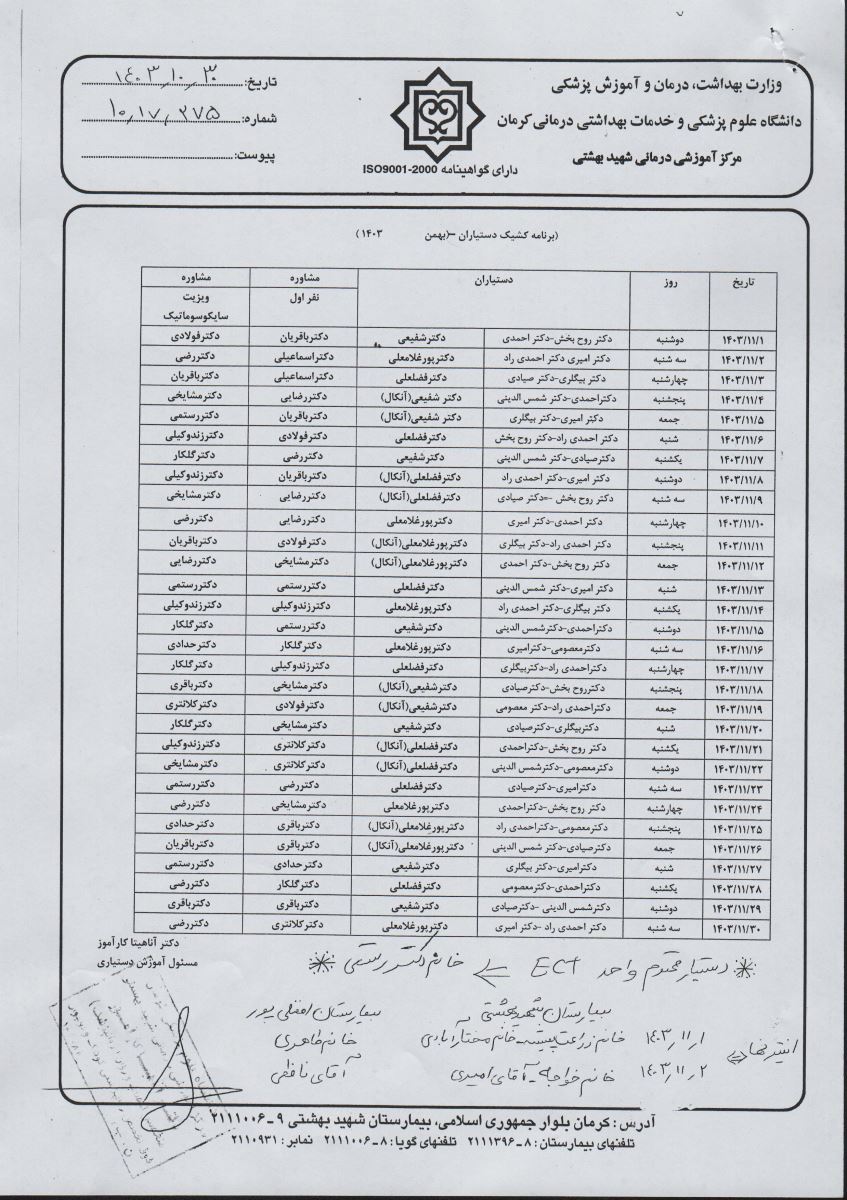 وزارت بهداشت، درمان و آموزش پزشکی
دانشگاه علوم پزشکی و خدمات بهداشتی درمانی کرمان
مرکز آموزشی درمانی شهید بهشتی
دارای گواهینامه ISO9001-2000
تاریخ: ۱۴۰۳,۱۰,۳۰
شماره: ۱۰,۱۷,۲۷۵
پیوست:
(برنامه کشیک دستیاران –(بهمن ۱۴۰۳)
تاریخ روز دستیاران مشاوره نفر اول مشاوره ویزیت سایکوسوماتیک
۱۴۰۳/۱۱/۱ دوشنبه دکتر روح بخش-دکتر احمدی دکترشفیعی دکترباقریان دکترفولادی
۱۴۰۳/۱۱/۲ سه شنبه دکتر امیری دکتر احمدی راد دکترپورغلامعلی دکتراسماعیلی دکتررضی
۱۴۰۳/۱۱/۳ چهارشنبه دکتر بیگلری-دکتر صیادی دکترفضلعلی دکتراسماعیلی دکترباقریان
۱۴۰۳/۱۱/۴ پنجشنبه دکتراحمدی-دکتر شمس الدینی دکتر شفیعی(آنکال) دکتررضایی دکترمشایخی
۱۴۰۳/۱۱/۵ جمعه دکتر امیری-دکتر بیگلری دکتر شفیعی(آنکال) دکترباقریان دکتررستمی
۱۴۰۳/۱۱/۶ شنبه دکتر احمدی راد-دکتر روح بخش دکترفضلعلی دکترفولادی دکترزندوکیلی
۱۴۰۳/۱۱/۷ یکشنبه دکترصیادی-دکتر شمس الدینی دکترشفیعی دکتررضی دکترگلکار
۱۴۰۳/۱۱/۸ دوشنبه دکتر امیری-دکتر احمدی راد دکترفضلعلی(آنکال) دکترباقریان دکترزندوکیلی
۱۴۰۳/۱۱/۹ سه شنبه دکتر روح بخش -دکتر صیادی دکترفضلعلی(آنکال) دکتررضایی دکترمشایخی
۱۴۰۳/۱۱/۱۰ چهارشنبه دکتر احمدی-دکتر امیری دکترپورغلامعلی دکتررضایی دکتررضی
۱۴۰۳/۱۱/۱۱ پنجشنبه دکتر احمدی راد-دکتر بیگلری دکترپورغلامعلی(آنکال) دکترفولادی دکترباقریان
۱۴۰۳/۱۱/۱۲ جمعه دکتر روح بخش-دکتر احمدی دکترپورغلامعلی(آنکال) دکترمشایخی دکتررضایی
۱۴۰۳/۱۱/۱۳ شنبه دکتر امیری-دکتر شمس الدینی دکترفضلعلی دکتررستمی دکتررستمی
۱۴۰۳/۱۱/۱۴ یکشنبه دکتر بیگلری-دکتر احمدی راد دکترپورغلامعلی دکترزندوکیلی دکترزندوکیلی
۱۴۰۳/۱۱/۱۵ دوشنبه دکتراحمدی-دکترشمس الدینی دکترشفیعی دکتررستمی دکترگلکار
۱۴۰۳/۱۱/۱۶ سه شنبه دکترمعصومی-دکترامیری دکترپورغلامعلی دکترگلکار دکترحدادی
۱۴۰۳/۱۱/۱۷ چهارشنبه دکتراحمدی راد-دکتربیگلری دکترفضلعلی دکترزندوکیلی دکترگلکار
۱۴۰۳/۱۱/۱۸ پنجشنبه دکترروح بخش-دکترصیادی دکترشفیعی(آنکال) دکترمشایخی دکترباقری
۱۴۰۳/۱۱/۱۹ جمعه دکتراحمدی راد-دکتر معصومی دکترشفیعی(آنکال) دکترفولادی دکترکلانتری
۱۴۰۳/۱۱/۲۰ شنبه دکتربیگلری-دکترصیادی دکترشفیعی دکترمشایخی دکترگلکار
۱۴۰۳/۱۱/۲۱ یکشنبه دکتر روح بخش-دکتراحمدی دکترفضلعلی(آنکال) دکترکلانتری دکترزندوکیلی
۱۴۰۳/۱۱/۲۲ دوشنبه دکترمعصومی-دکترشمس الدینی دکترفضلعلی(آنکال) دکترکلانتری دکترمشایخی
۱۴۰۳/۱۱/۲۳ سه شنبه دکترامیری-دکترصیادی دکترفضلعلی دکتررضی دکتررستمی
۱۴۰۳/۱۱/۲۴ چهارشنبه دکتر روح بخش-دکتراحمدی دکترپورغلامعلی دکترمشایخی دکتررضی
۱۴۰۳/۱۱/۲۵ پنجشنبه دکترمعصومی-دکتراحمدی راد دکترپورغلامعلی(آنکال) دکترباقری دکترحدادی
۱۴۰۳/۱۱/۲۶ جمعه دکترصیادی-دکتر شمس الدینی دکترپورغلامعلی(آنکال) دکترباقری دکترباقریان
۱۴۰۳/۱۱/۲۷ شنبه دکترامیری-دکتر بیگلری دکترشفیعی دکترحدادی دکتررستمی
۱۴۰۳/۱۱/۲۸ یکشنبه دکتراحمدی-دکترمعصومی دکترفضلعلی دکترگلکار دکتررضی
۱۴۰۳/۱۱/۲۹ دوشنبه دکترشمس الدینی -دکترصیادی دکترشفیعی دکترباقری دکترباقری
۱۴۰۳/۱۱/۳۰ سه شنبه دکتر احمدی راد -دکتر امیری دکترپورغلامعلی دکترکلانتری دکتررضی
دکتر آناهیتا کارآموز
مسئول آموزش دستیاری
دستیار محترم واحد ECT ⇐ خانم دکتر رستمی
بیمارستان شهید بهشتی بیمارستان افضلی پور
اینترنها ⇐ ۱۴۰۳,۱۱,۱ خانم زراعت پیشه-خانم مختارآبادی خانم طاهری
۱۴۰۳,۱۱,۲ خانم خواجه-آقای امیری آقای نافعلی
آدرس: کرمان بلوار جمهوری اسلامی، بیمارستان شهید بهشتی ۹-۲۱۱۱۰۰۶
تلفنهای بیمارستان: ۸-۲۱۱۱۳۹۶ تلفنهای گویا: ۸-۲۱۱۱۰۰۶ نمابر: ۲۱۱۰۹۳۱